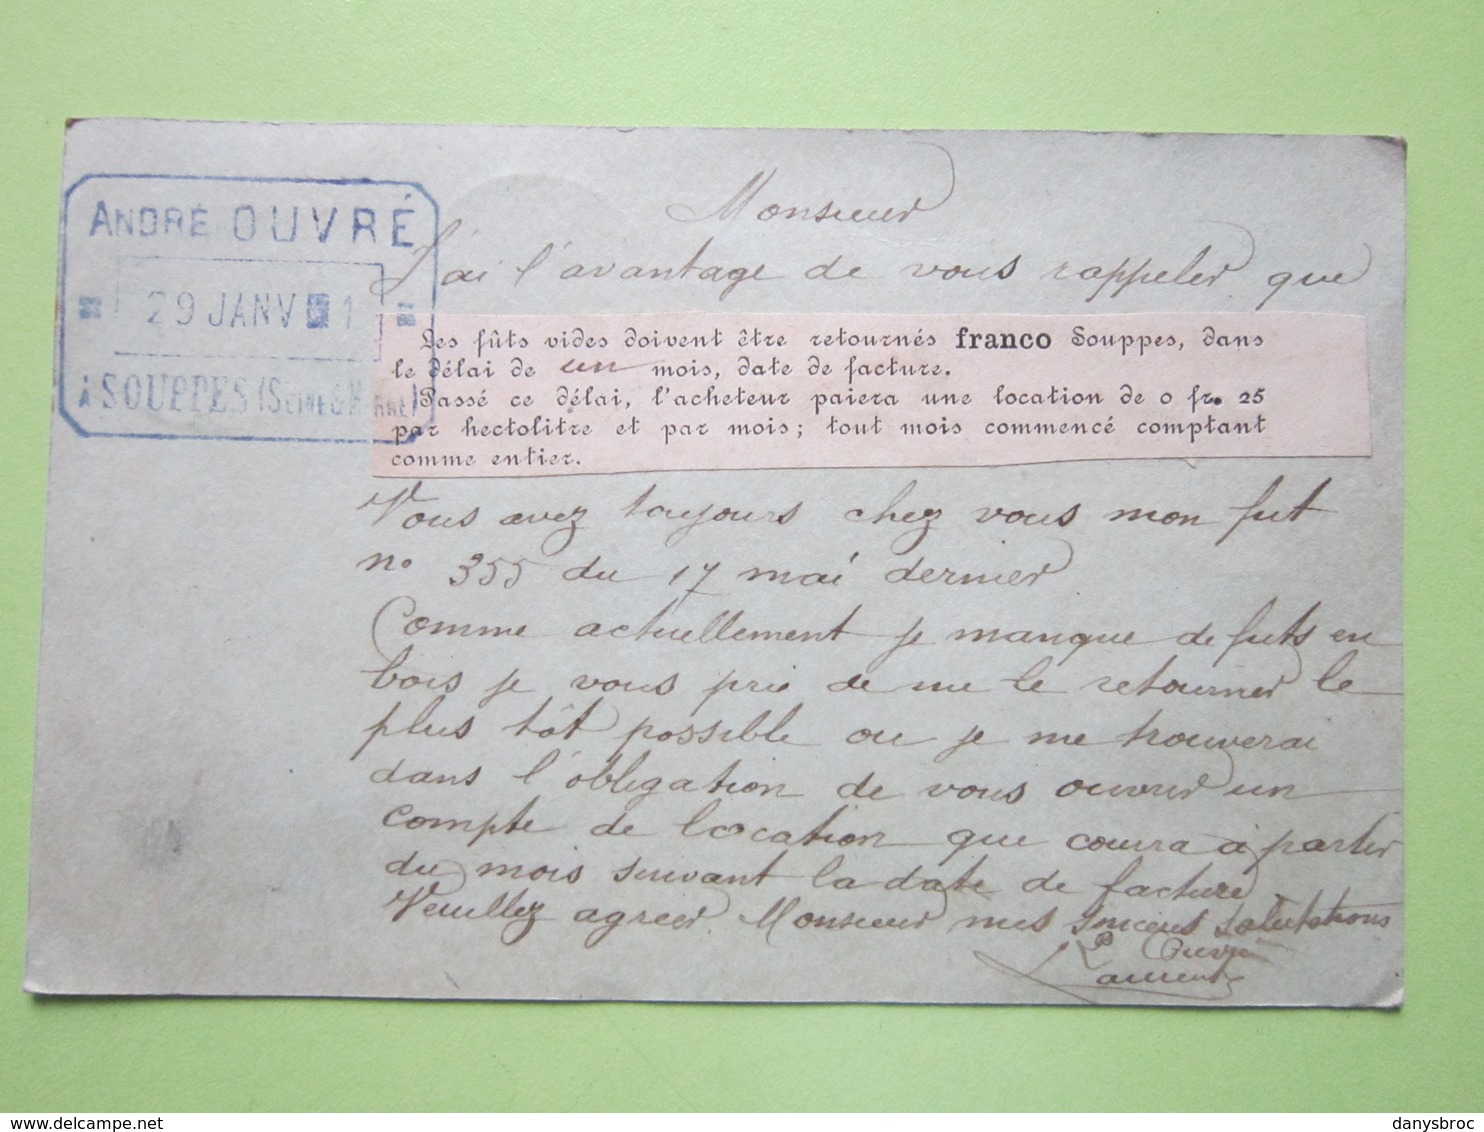 ANDRÉ OUVRÉ
29 JANV 1
À SOUPPES (SEINE & MARNE)
Monsieur
J'ai l'avantage de vous rappeler que
Les fûts vides doivent être retournés franco Souppes, dans
le délai de un mois, date de facture.
Passé ce délai, l'acheteur paiera une location de 0 fr. 25
par hectolitre et par mois; tout mois commencé comptant
comme entier.
Vous avez toujours chez vous mon fut
no 355 du 17 mai dernier
Comme actuellement je manque de futs en
bois je vous prie de me le retourner le
plus tôt possible ou je me trouverai
dans l'obligation de vous ouvrir un
compte de location que courra à partir
du mois suivant la date de facture
Veuillez agréer Monsieur mes sincères salutations
P Ouvré
danysbroc
www.delcampe.net